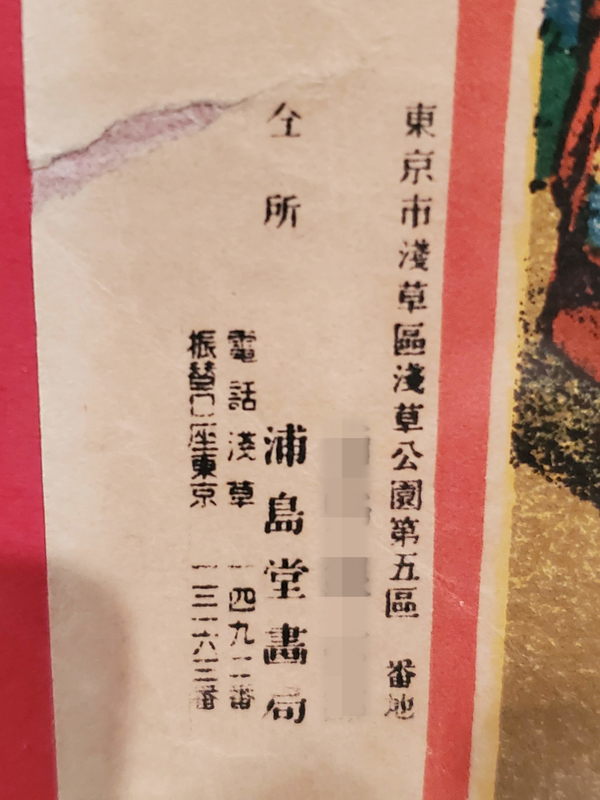 東京市淺草區淺草公園第五區 番地
仝所 浦島堂畵局
電話淺草 一四九二番
振替口座東京 一三一六三番